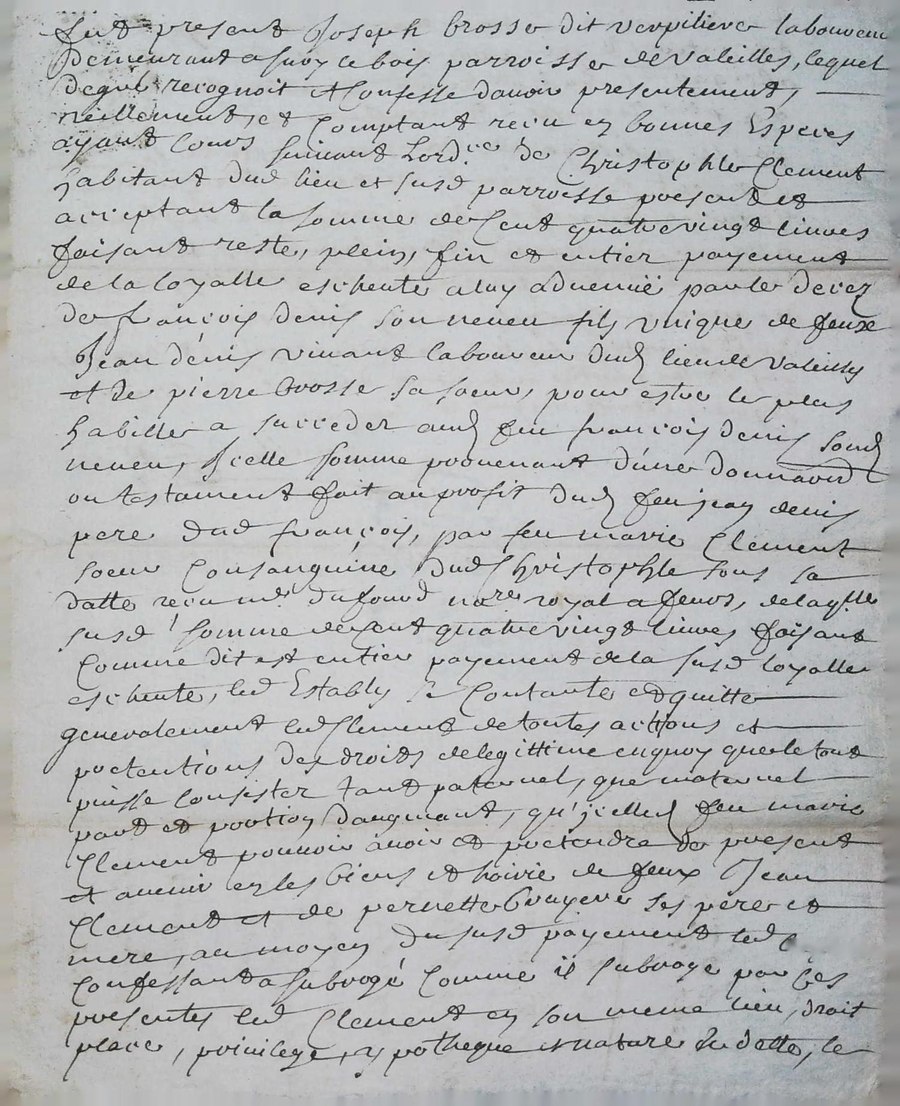 fut present Joseph brosse dit verpiliere laboureur
demeurant a sury le bois parroisse de valeilles, lequel
de gré recognoit et confesse d'avoir presentement,
reellement, et comptant receu en bonnes Especes
ayant cours suivant l'ord.ce de Christophle Clement
habitant dud lieu et susd parroisse present et
acceptant la somme de Cent quatre vingt livres
faisant reste, plein, fin et entier payement
de la loyalle escheute a luy advenuë par le decez
de françois denis son neveu fils unique de feux
Jean dénis vivant laboureur dud lieu de valeilly
et de pierre brosse sa soeur, pour estre le plus
habille a succeder aud feu françois denis sond
neveu, Jcelle somme provenant d'une donnaõn
ou testament fait au profit dud feu jean denis
pere dud françois, par feu marie Clement
soeur Consanguine dud Christophle sous sa
datte receu me dufour no.re royal a feurs, de laq.lle
susd somme de Cent quatre vingt livres faisant
Comme dit est entier payement de la susd loyalle
escheute, led Estably se Contante et quitte
generalement led Clement de toutes actions et
pretentions des droits de legittime en quoy que le tout
puisse Consister tant paternel, que maternel
part et portion d'augmant, qu'jcelle feu marie
Clement pouvoir avoir et pretendre de present
et avenir en les biens et hoirie de feux Jean
Clement et de pernette bruyere ses pere et
mere, au moyen du susd payement led
Confessant a subrogé Comme il subroge par Ces
presentes led Clement en son meme lieu, droit
place, privilege, ypotheque et nature de dette, le